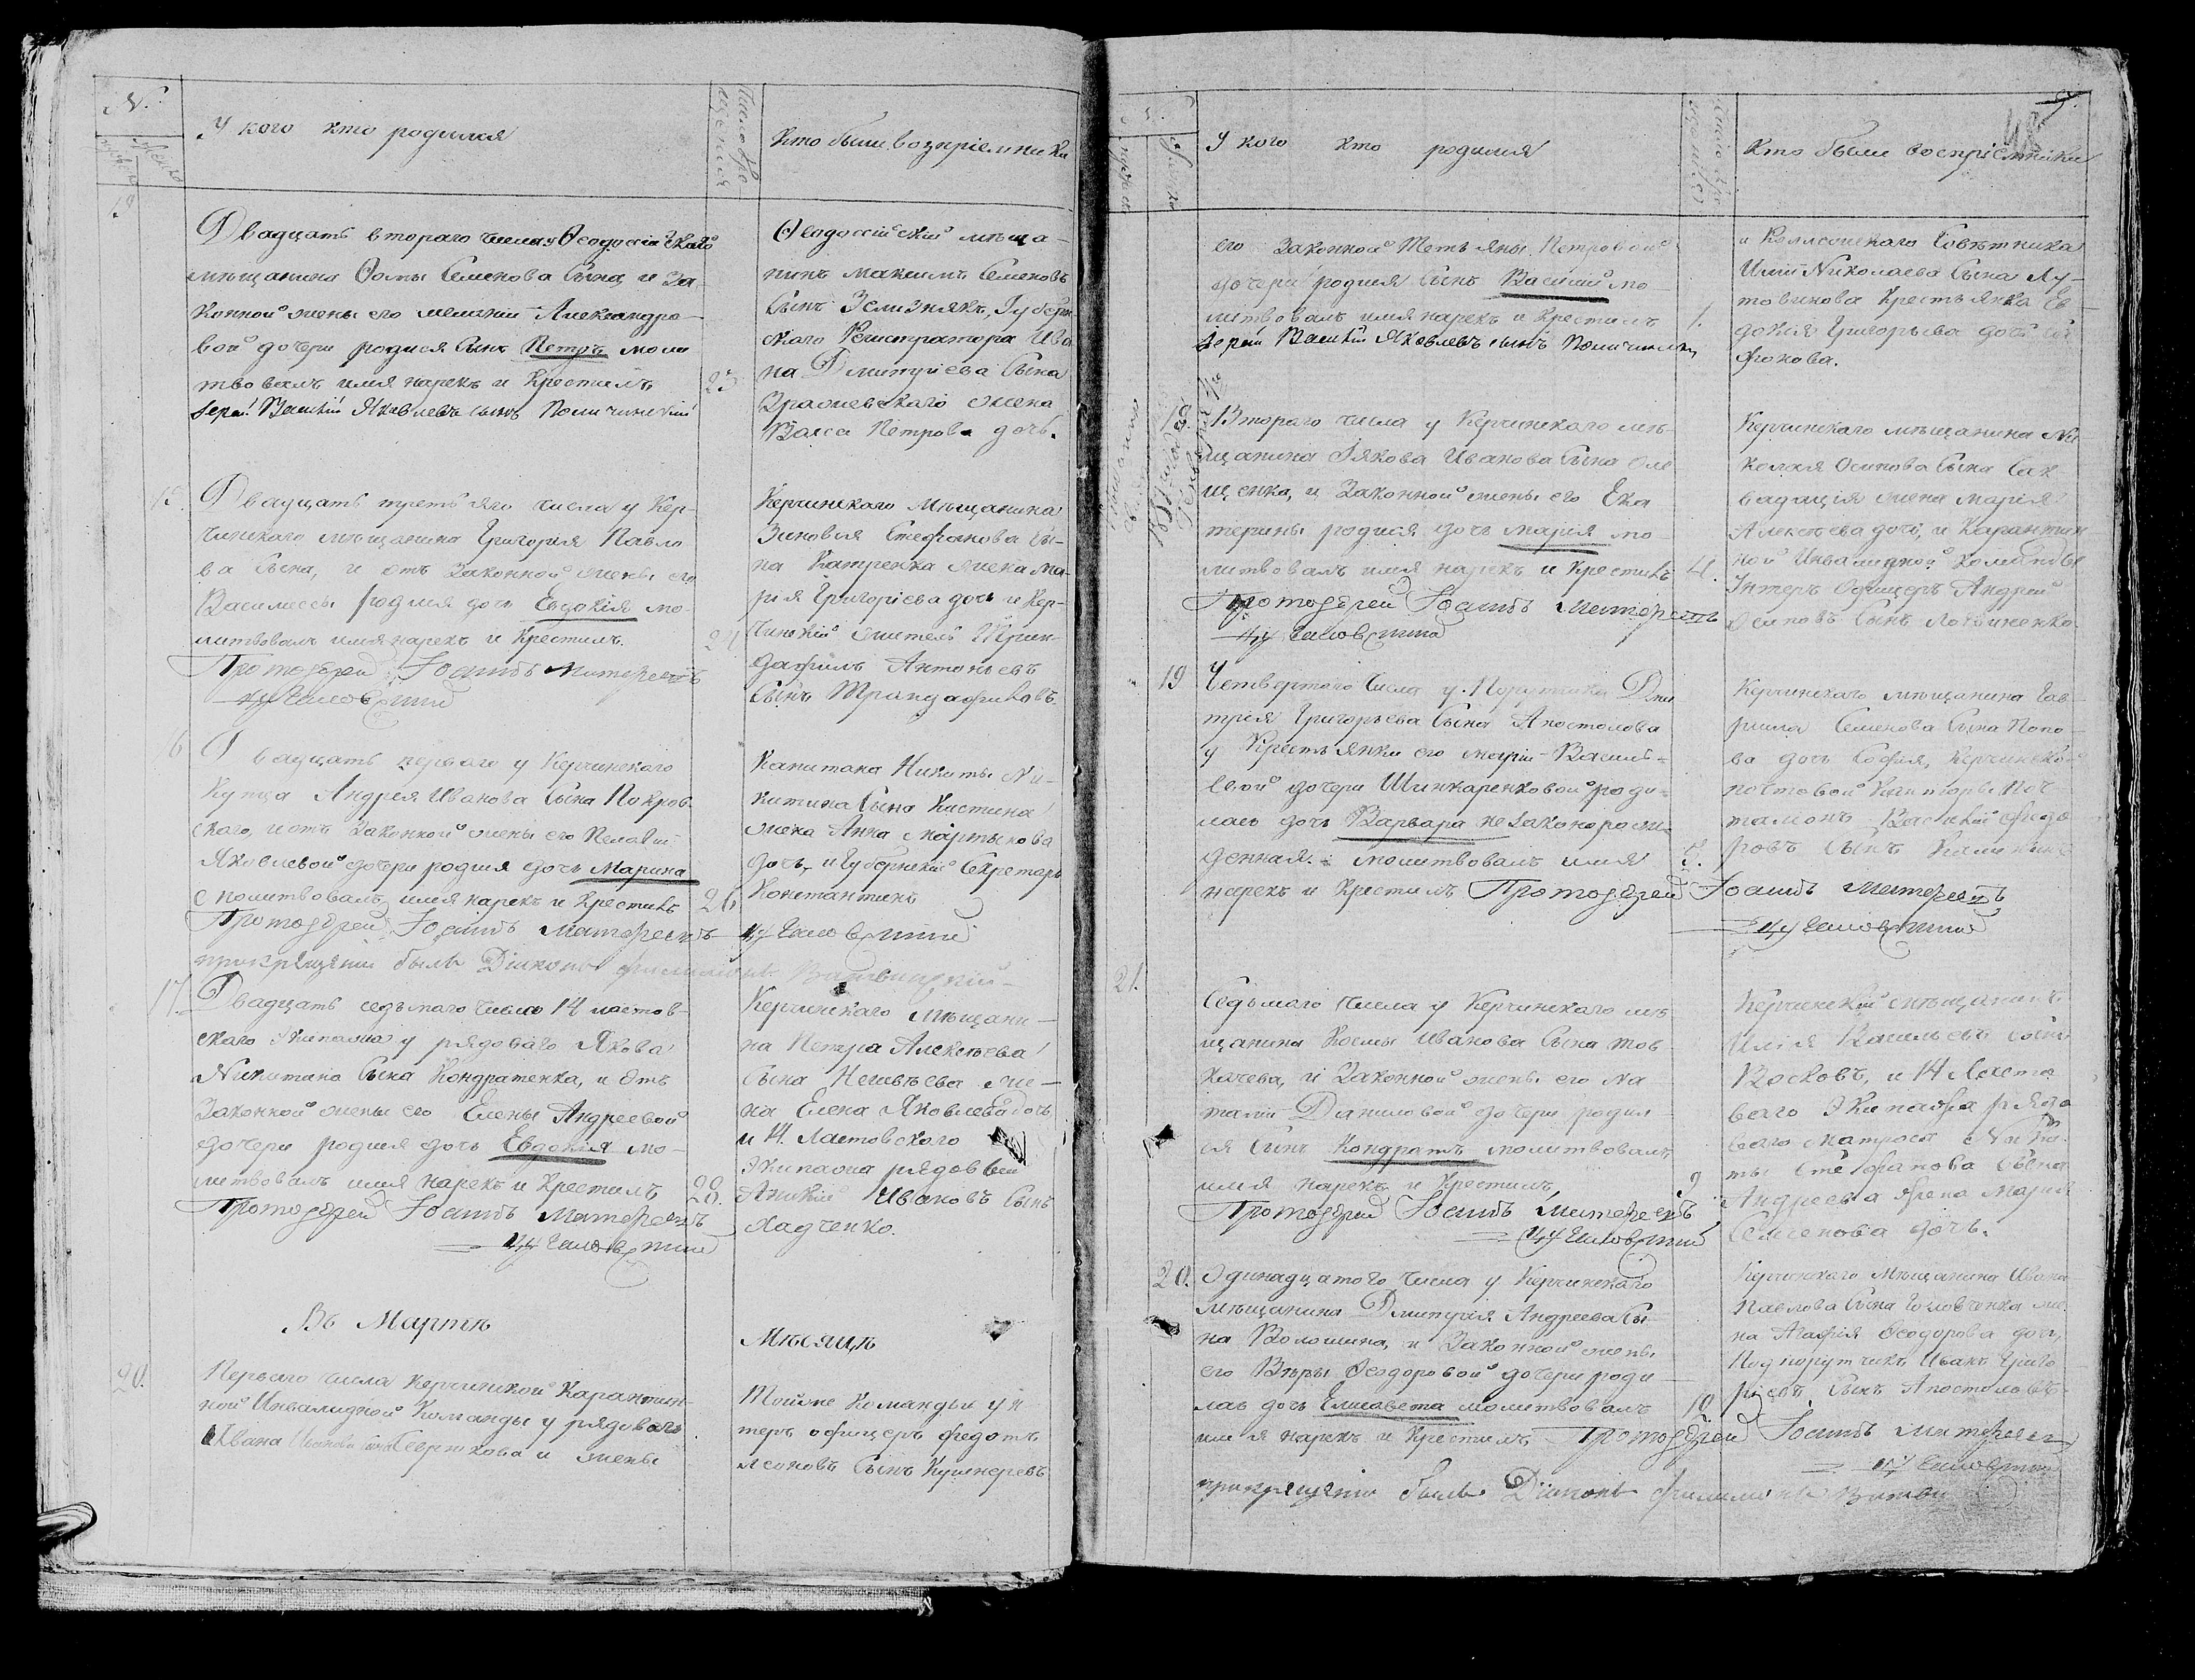 №.
У кого кто родился
Число кре
щения
Кто были возприемники
Двадцать втораго числа у Ѳеодосійскаго
мѣщанина Ѳомы Семенова Сына, и За
конной жены его Меланіи Александро-
вой дочери родился Сынъ Петръ моли
твовалъ имя нарекъ и Крестилъ
Іерей Василій Яковлевъ сынъ
23
Ѳеодоссійскій мѣща-
нинъ Максимъ Семеновъ
Сынъ Зелизнякъ, Губерн
скаго Регистратора Ива
на Дмитріева Сына
жена
Васса Петрова дочь.
15.
Двадцать третьяго числа у Кер-
чинскаго мѣщанина Григорія Павло
ва Сына, и отъ Законной жены его
Василиссы родился дочь Евдокія мо-
литвовалъ имя нарекъ и Крестилъ.
Протоіерей Іоаннъ
24
Керчинскаго Мѣщанина
Зиновія Стефанова Сы-
на Катренка жена Ма-
рія Григоріева дочь и Кер-
чинскій житель Тран-
дафилъ Антоньевъ
Сынъ Трандафиловъ.
6
Двадцать перваго у Керчинскаго
Купца Андрея Иванова Сына Покров
скаго, и отъ Законной жены его Пелагіи
Яковлевой дочери родился дочь Марина
молитвовалъ имя нарекъ и Крестилъ
26
Протоіерей Іоаннъ
при крещеніи былъ Діаконъ Филимонъ
Капитана Никиты Ни-
китина Сына Кистина
жена Анна Мартынова
дочь, и Губернскій Секретарь
Константинъ
17.
Двадцать седьмаго числа 14 ластов-
скаго Экипажа у рядоваго Якова
Никитана Сына Кондратенка, и Отъ
Законной жены его Елены Андреевой
дочери родился дочь Евдокія мо-
литвовалъ имя нарекъ и Крестилъ
28.
Протоіерей Іоаннъ
Керчинскаго Мѣщани-
на Петра Алексѣева
Сына же-
на Елена Яковлева дочь
и 14. Ластовскаго
Экипажа рядовой
Ивановъ Сынъ
Ладченко.
Въ Мартѣ
Мѣсяцѣ
20.
Перваго числа Керчинской Карантин-
ной Инвалидной Команды у рядоваго
Ивана и жены
Тойже Команды ун
теръ офицеръ Федотъ
Сынъ Кушнеревъ
У кого кто родился
Кто были воспріемники
его Законной Тетьяны Петровой
дочери родился Сынъ Василій мо-
литвовалъ имя нарекъ и Крестилъ
Іерей Василій Яковлевъ сынъ
1.
и Коллежскаго Совѣтника
Иліи Николаева Сына Лу-
товинова Крестьянка Ев
докія Григорьева дочь
18.
Втораго числа у Керчинскаго мѣ-
щанина Іякова Иванова Сына Оле
щенка, и Законной жены его Ека
терины родился дочь Марія мо-
литвовалъ имя нарекъ и Крестилъ
4.
Протоіерей Іоаннъ
Керчинскаго мѣщанина Ни-
колая Осипова Сына
жена Марія
Алексѣева дочь, и Карантин
ной Инвалидной Команды
Унтеръ Офицеръ Андрей
Осиповъ Сынъ
19
Четвертаго Числа у Порутчика Дми
трія Григорьева Сына Апостолова
у Крестьянки его Маріи Василь-
евой дочери Шинкаренковой роди-
лась дочь Варвара незаконорож-
денная. молитвовалъ имя
нарекъ и Крестилъ Протоіерей Іоаннъ
5.
Керчинскаго мѣщанина Гав
риила Семенова Сына Попо-
ва дочь Софія, Керченско-
почтовой Конторы Поч-
таліонъ Василій Федо
ровъ Сынъ
21.
Седьмаго числа у Керчинскаго мѣ-
щанина Космы Иванова Сына Тов-
качева, и Законной жены его На
таліи Даниловой дочери родил
ся Сынъ Кондратъ молитвовалъ
имя нарекъ и Крестилъ
9
Протоіерей Іоаннъ
Керчинскій мѣщанинъ
Илія Васильевъ сынъ
и 14 Ласто
ваго Экипажа рядо
ваго матроса Ники
ты Стефанова Сына
Андреева жена Марія
Семенова дочь.
20.
Одинадцатого Числа у Керчинскаго
мѣщанина Дмитрія Андреева Сы
на Волошина, и Законной жены
его Вѣры Ѳеодоровой дочери роди
лась дочь Елисавета молитвовалъ
имя нарекъ и Крестилъ Протоіерей Іоаннъ
при крещеніи былъ Діаконъ Филимонъ
Керчинскаго Мѣщанина Ивана
Павлова Сына Головченка же
на Агафія Ѳеодорова дочь,
Подпорутчикъ Иванъ Григо
рьевъ Сынъ Апостоловъ